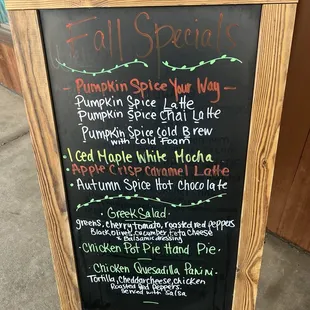 Fall Specials
- Pumpkin Spice Your Way -
Pumpkin Spice Latte
Pumpkin Spice Chai Latte
Pumpkin Spice Cold Brew
with Cold Foam
· Iced Maple White Mocha
· Apple Crisp Caramel Latte
· Autumn Spice Hot Chocolate
· Greek Salad ·
greens, cherry tomato, roasted red peppers
Black olives, cucumber, feta cheese
& Balsamic dressing
· Chicken Pot Pie Hand Pie ·
· Chicken Quesadilla Panini ·
Tortilla, cheddar cheese, chicken
Roasted Red Peppers
Served with Salsa